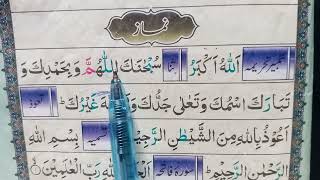 نماز
تکبیر تحریمہ اَللّٰهُ اَكْبَرُ ثنا سُبْحٰنَكَ اللّٰهُمَّ وَبِحَمْدِكَ وَ
تَبَارَكَ اسْمُكَ وَتَعَالٰى جَدُّكَ وَلَآ اِلٰهَ غَيْرُكَ تعوذ
اَعُوْذُ بِاللّٰهِ مِنَ الشَّيْطٰنِ الرَّجِيْمِ تسمیہ بِسْمِ اللّٰهِ
الرَّحْمٰنِ الرَّحِيْمِ سورۃ فاتحہ رَبِّ الْعٰلَمِيْنَ